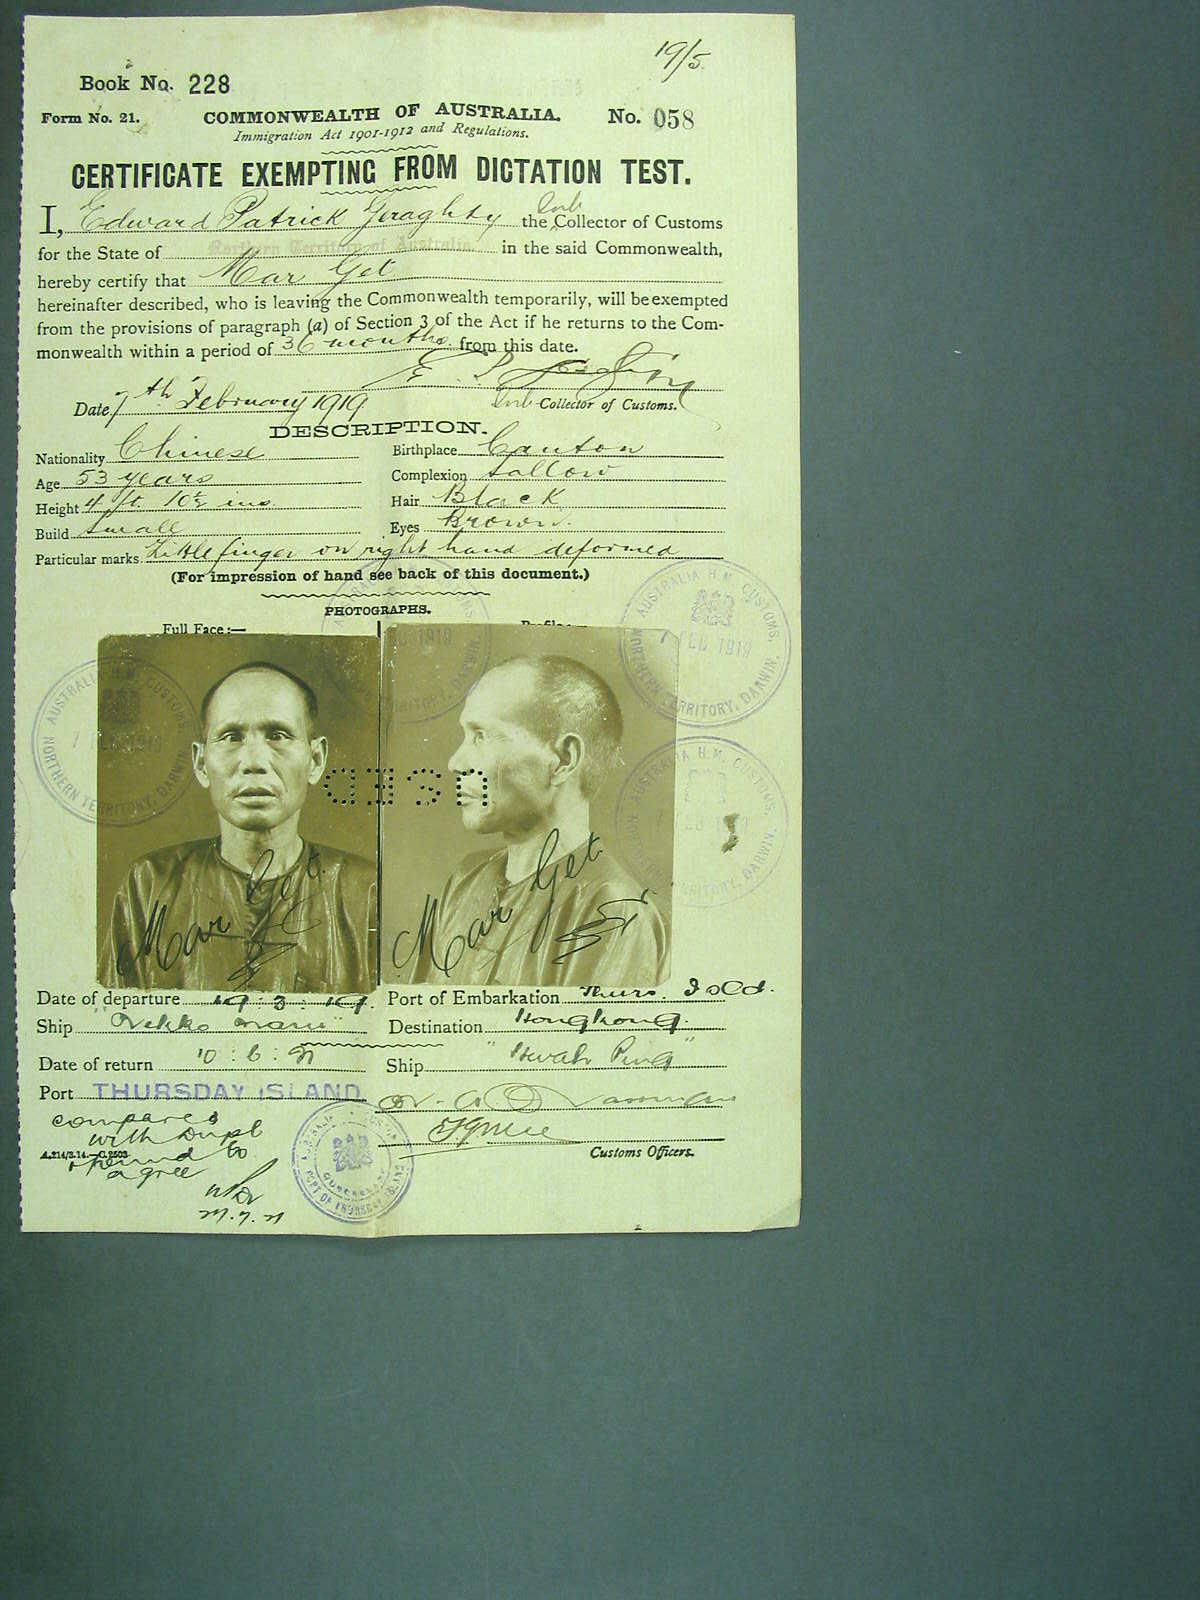 19/5
Book No. 228
Form No. 21. COMMONWEALTH OF AUSTRALIA. No. 058
Immigration Act 1901-1912 and Regulations.
CERTIFICATE EXEMPTING FROM DICTATION TEST.
I, Edward Patrick Geraghty the Sub Collector of Customs
for the State of Northern Territory of Australia in the said Commonwealth,
hereby certify that Mar Get
hereinafter described, who is leaving the Commonwealth temporarily, will be exempted
from the provisions of paragraph (a) of Section 3 of the Act if he returns to the Com-
monwealth within a period of 36 months from this date.
Date 7th February 1919 Sub-Collector of Customs.
DESCRIPTION.
Nationality Chinese Birthplace Canton
Age 53 years Complexion Sallow
Height 4 ft. 10½ ins. Hair Black
Build Small Eyes Brown.
Particular marks Little finger on right hand deformed
(For impression of hand see back of this document.)
PHOTOGRAPHS.
Full Face:— Profile:—
AUSTRALIA H.M. CUSTOMS. 7 FEB 1919 NORTHERN TERRITORY, DARWIN.
AUSTRALIA H.M. CUSTOMS. 7 FEB 1919 NORTHERN TERRITORY, DARWIN.
AUSTRALIA H.M. CUSTOMS. 7 FEB 1919 NORTHERN TERRITORY, DARWIN.
AUSTRALIA H.M. CUSTOMS. 7 FEB 1919 NORTHERN TERRITORY, DARWIN.
USED
Mar Get. Mar Get.
Date of departure 19.3.19. Port of Embarkation Thurs. Isld.
Ship "Nikko Maru" Destination Hongkong.
Date of return 10:6:21 Ship "Hwah Ping"
Port THURSDAY ISLAND
compared
with Dupl
& found to
agree
A.214/3.14.—C.2503. Customs Officers.
PORT OF THURSDAY ISLAND
QUEENSLAND
21.7.21